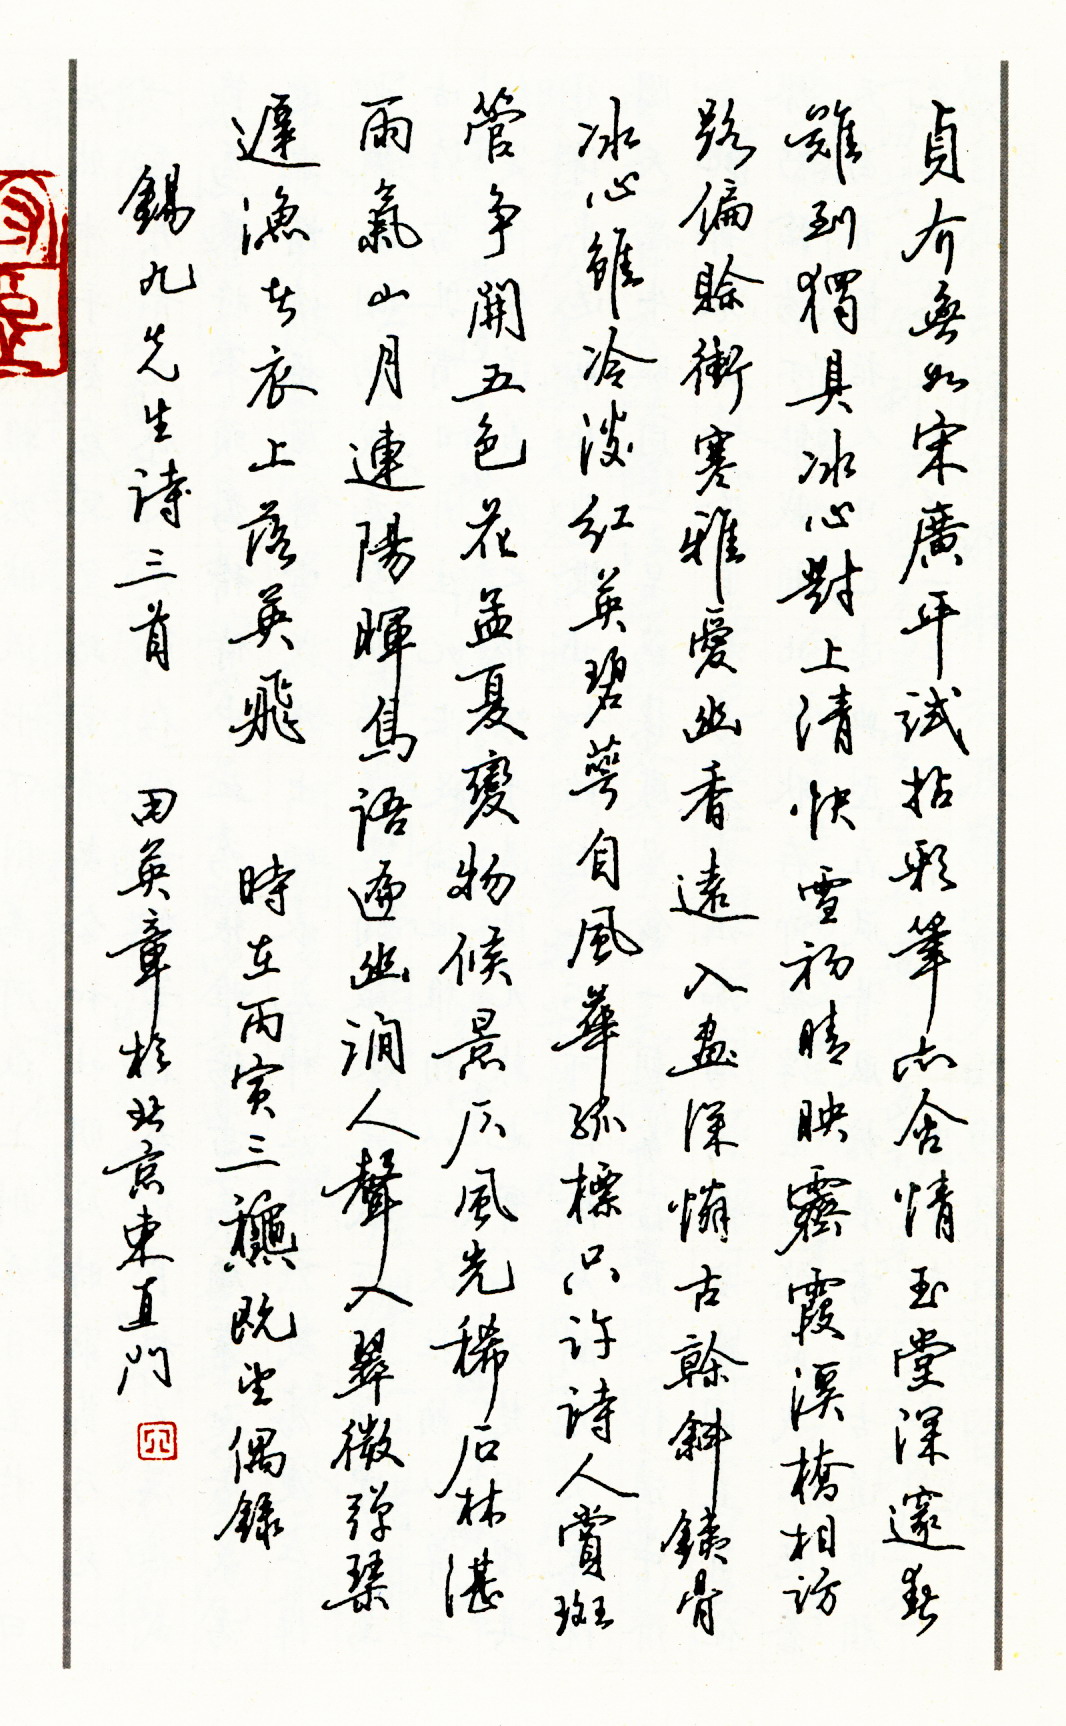 貞介無如宋廣平試拈彩筆亦含情玉堂深邃春
難到獨具冰心對上清快雪初晴映霽霞溪橋相訪
路偏賒衝寒雅愛幽香遠入畫深憐古榦斜鐵骨
冰心雖冷淡紅英碧萼自風華孤標只許詩人賞斑
管爭開五色花孟夏變物候景仄風光稀石林湛
雨氣山月連陽暉鳥語遍幽澗人聲入翠微彈琴
遲漁者衣上落英飛 時在丙寅三秋既望偶錄
錫九先生詩三首 田英章於北京東直門